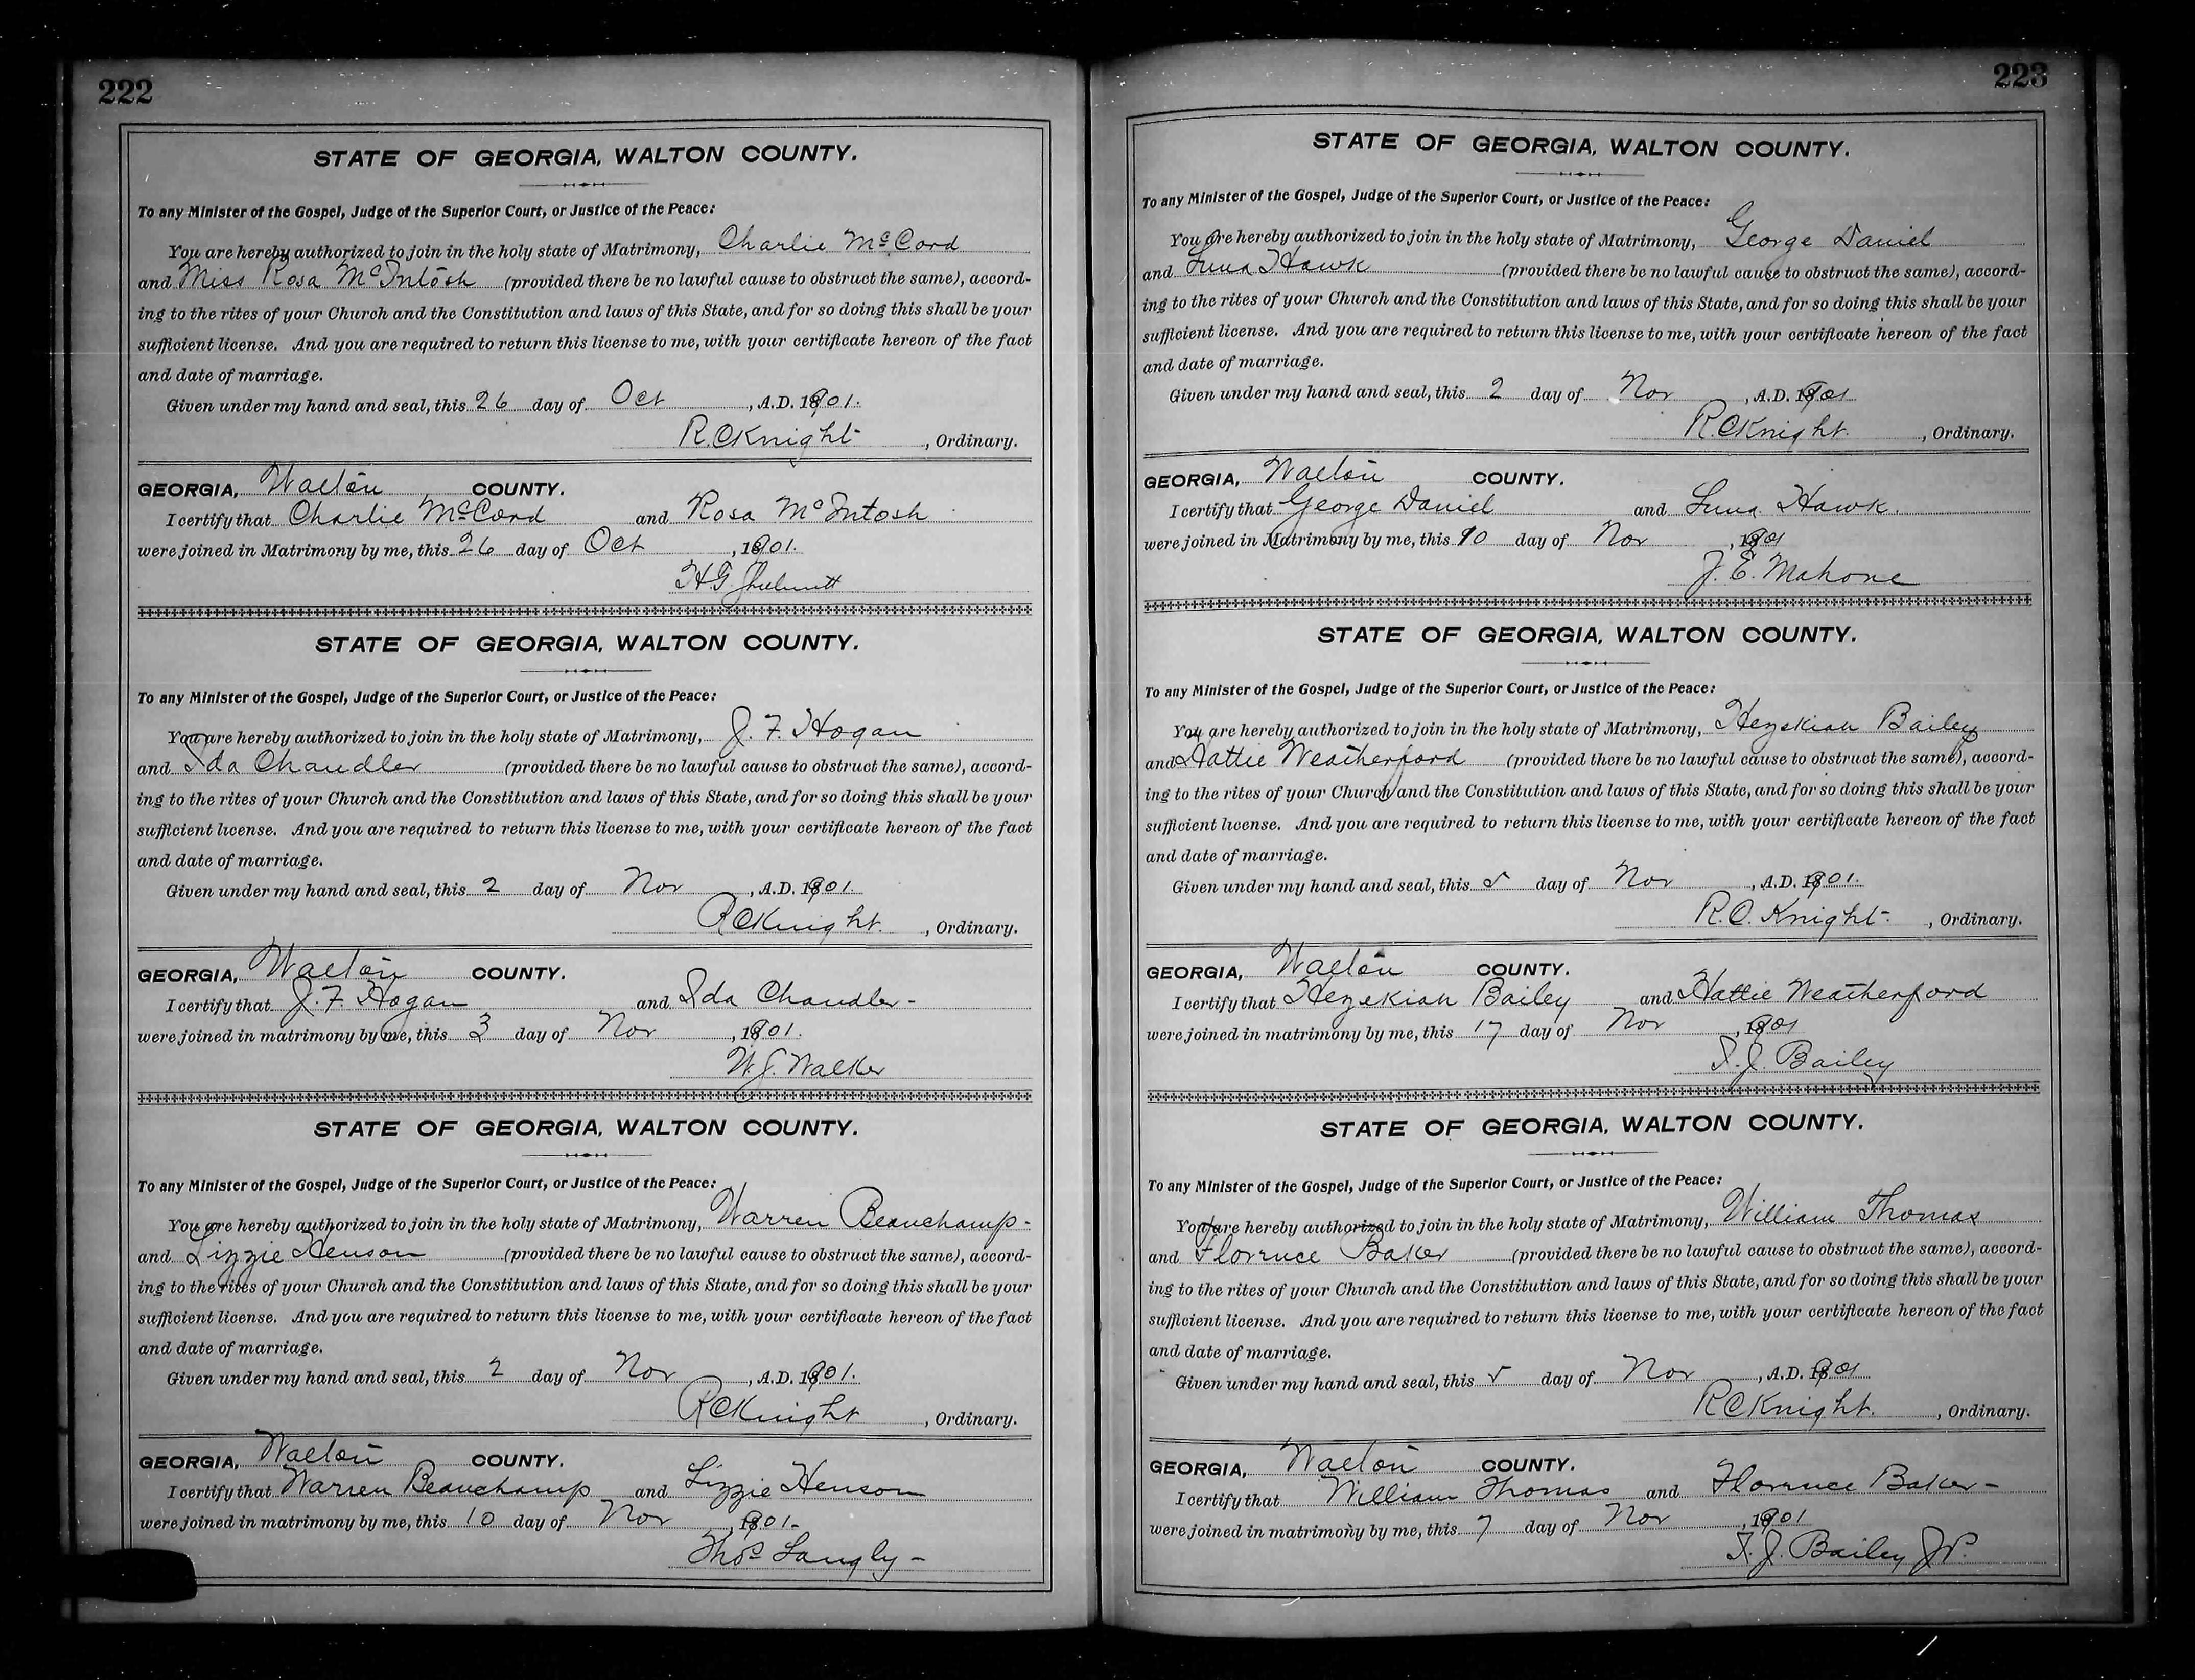 222
STATE OF GEORGIA, WALTON COUNTY.
To any Minister of the Gospel, Judge of the Superior Court, or Justice of the Peace:
You are hereby authorized to join in the holy state of Matrimony, Charlie McCord
and Miss Rosa McIntosh (provided there be no lawful cause to obstruct the same), accord-
ing to the rites of your Church and the Constitution and laws of this State, and for so doing this shall be your
sufficient license. And you are required to return this license to me, with your certificate hereon of the fact
and date of marriage.
Given under my hand and seal, this 26 day of Oct, A.D. 1901.
R.C Knight, Ordinary.
GEORGIA, Walton COUNTY.
I certify that Charlie McCord and Rosa McIntosh
were joined in Matrimony by me, this 26 day of Oct, 1901.
H.G.
STATE OF GEORGIA, WALTON COUNTY.
To any Minister of the Gospel, Judge of the Superior Court, or Justice of the Peace:
You are hereby authorized to join in the holy state of Matrimony, J. F. Hogan
and Ida Chandler (provided there be no lawful cause to obstruct the same), accord-
ing to the rites of your Church and the Constitution and laws of this State, and for so doing this shall be your
sufficient license. And you are required to return this license to me, with your certificate hereon of the fact
and date of marriage.
Given under my hand and seal, this 2 day of Nov, A.D. 1901.
R C Knight., Ordinary.
GEORGIA, Walton COUNTY.
I certify that J. F. Hogan and Ida Chandler-
were joined in matrimony by me, this 3 day of Nov, 1901.
W. J. Walker
STATE OF GEORGIA, WALTON COUNTY.
To any Minister of the Gospel, Judge of the Superior Court, or Justice of the Peace:
You are hereby authorized to join in the holy state of Matrimony, Warren Beauchamp-
and Lizzie Henson (provided there be no lawful cause to obstruct the same), accord-
ing to the rites of your Church and the Constitution and laws of this State, and for so doing this shall be your
sufficient license. And you are required to return this license to me, with your certificate hereon of the fact
and date of marriage.
Given under my hand and seal, this 2 day of Nov, A.D. 1901.
R C Knight, Ordinary.
GEORGIA, Walton COUNTY.
I certify that Warren Beauchamp and Lizzie Henson
were joined in matrimony by me, this 10 day of Nov, 1901-
Thos Langly-
223
STATE OF GEORGIA, WALTON COUNTY.
To any Minister of the Gospel, Judge of the Superior Court, or Justice of the Peace:
You are hereby authorized to join in the holy state of Matrimony, George Daniel
and Luna Hawk (provided there be no lawful cause to obstruct the same), accord-
ing to the rites of your Church and the Constitution and laws of this State, and for so doing this shall be your
sufficient license. And you are required to return this license to me, with your certificate hereon of the fact
and date of marriage.
Given under my hand and seal, this 2 day of Nov, A.D. 1901
R. C Knight., Ordinary.
GEORGIA, Walton COUNTY.
I certify that George Daniel and Luna Hawk.
were joined in Matrimony by me, this 10 day of Nov, 1901
J. E. Mahone
STATE OF GEORGIA, WALTON COUNTY.
To any Minister of the Gospel, Judge of the Superior Court, or Justice of the Peace:
You are hereby authorized to join in the holy state of Matrimony, Hezekiah Bailey
and Hattie Weatherford (provided there be no lawful cause to obstruct the same), accord-
ing to the rites of your Church and the Constitution and laws of this State, and for so doing this shall be your
sufficient license. And you are required to return this license to me, with your certificate hereon of the fact
and date of marriage.
Given under my hand and seal, this 5 day of Nov, A.D. 1901.
R. C. Knight-, Ordinary.
GEORGIA, Walton COUNTY.
I certify that Hezekiah Bailey and Hattie Weatherford
were joined in matrimony by me, this 17 day of Nov, 1901
J. Bailey
STATE OF GEORGIA, WALTON COUNTY.
To any Minister of the Gospel, Judge of the Superior Court, or Justice of the Peace:
You are hereby authorized to join in the holy state of Matrimony, William Thomas
and Florence Baker (provided there be no lawful cause to obstruct the same), accord-
ing to the rites of your Church and the Constitution and laws of this State, and for so doing this shall be your
sufficient license. And you are required to return this license to me, with your certificate hereon of the fact
and date of marriage.
Given under my hand and seal, this 5 day of Nov, A.D. 1901
R C Knight., Ordinary.
GEORGIA, Walton COUNTY.
I certify that William Thomas and Florence Baker-
were joined in matrimony by me, this 7 day of Nov, 1901
J. Bailey JP.